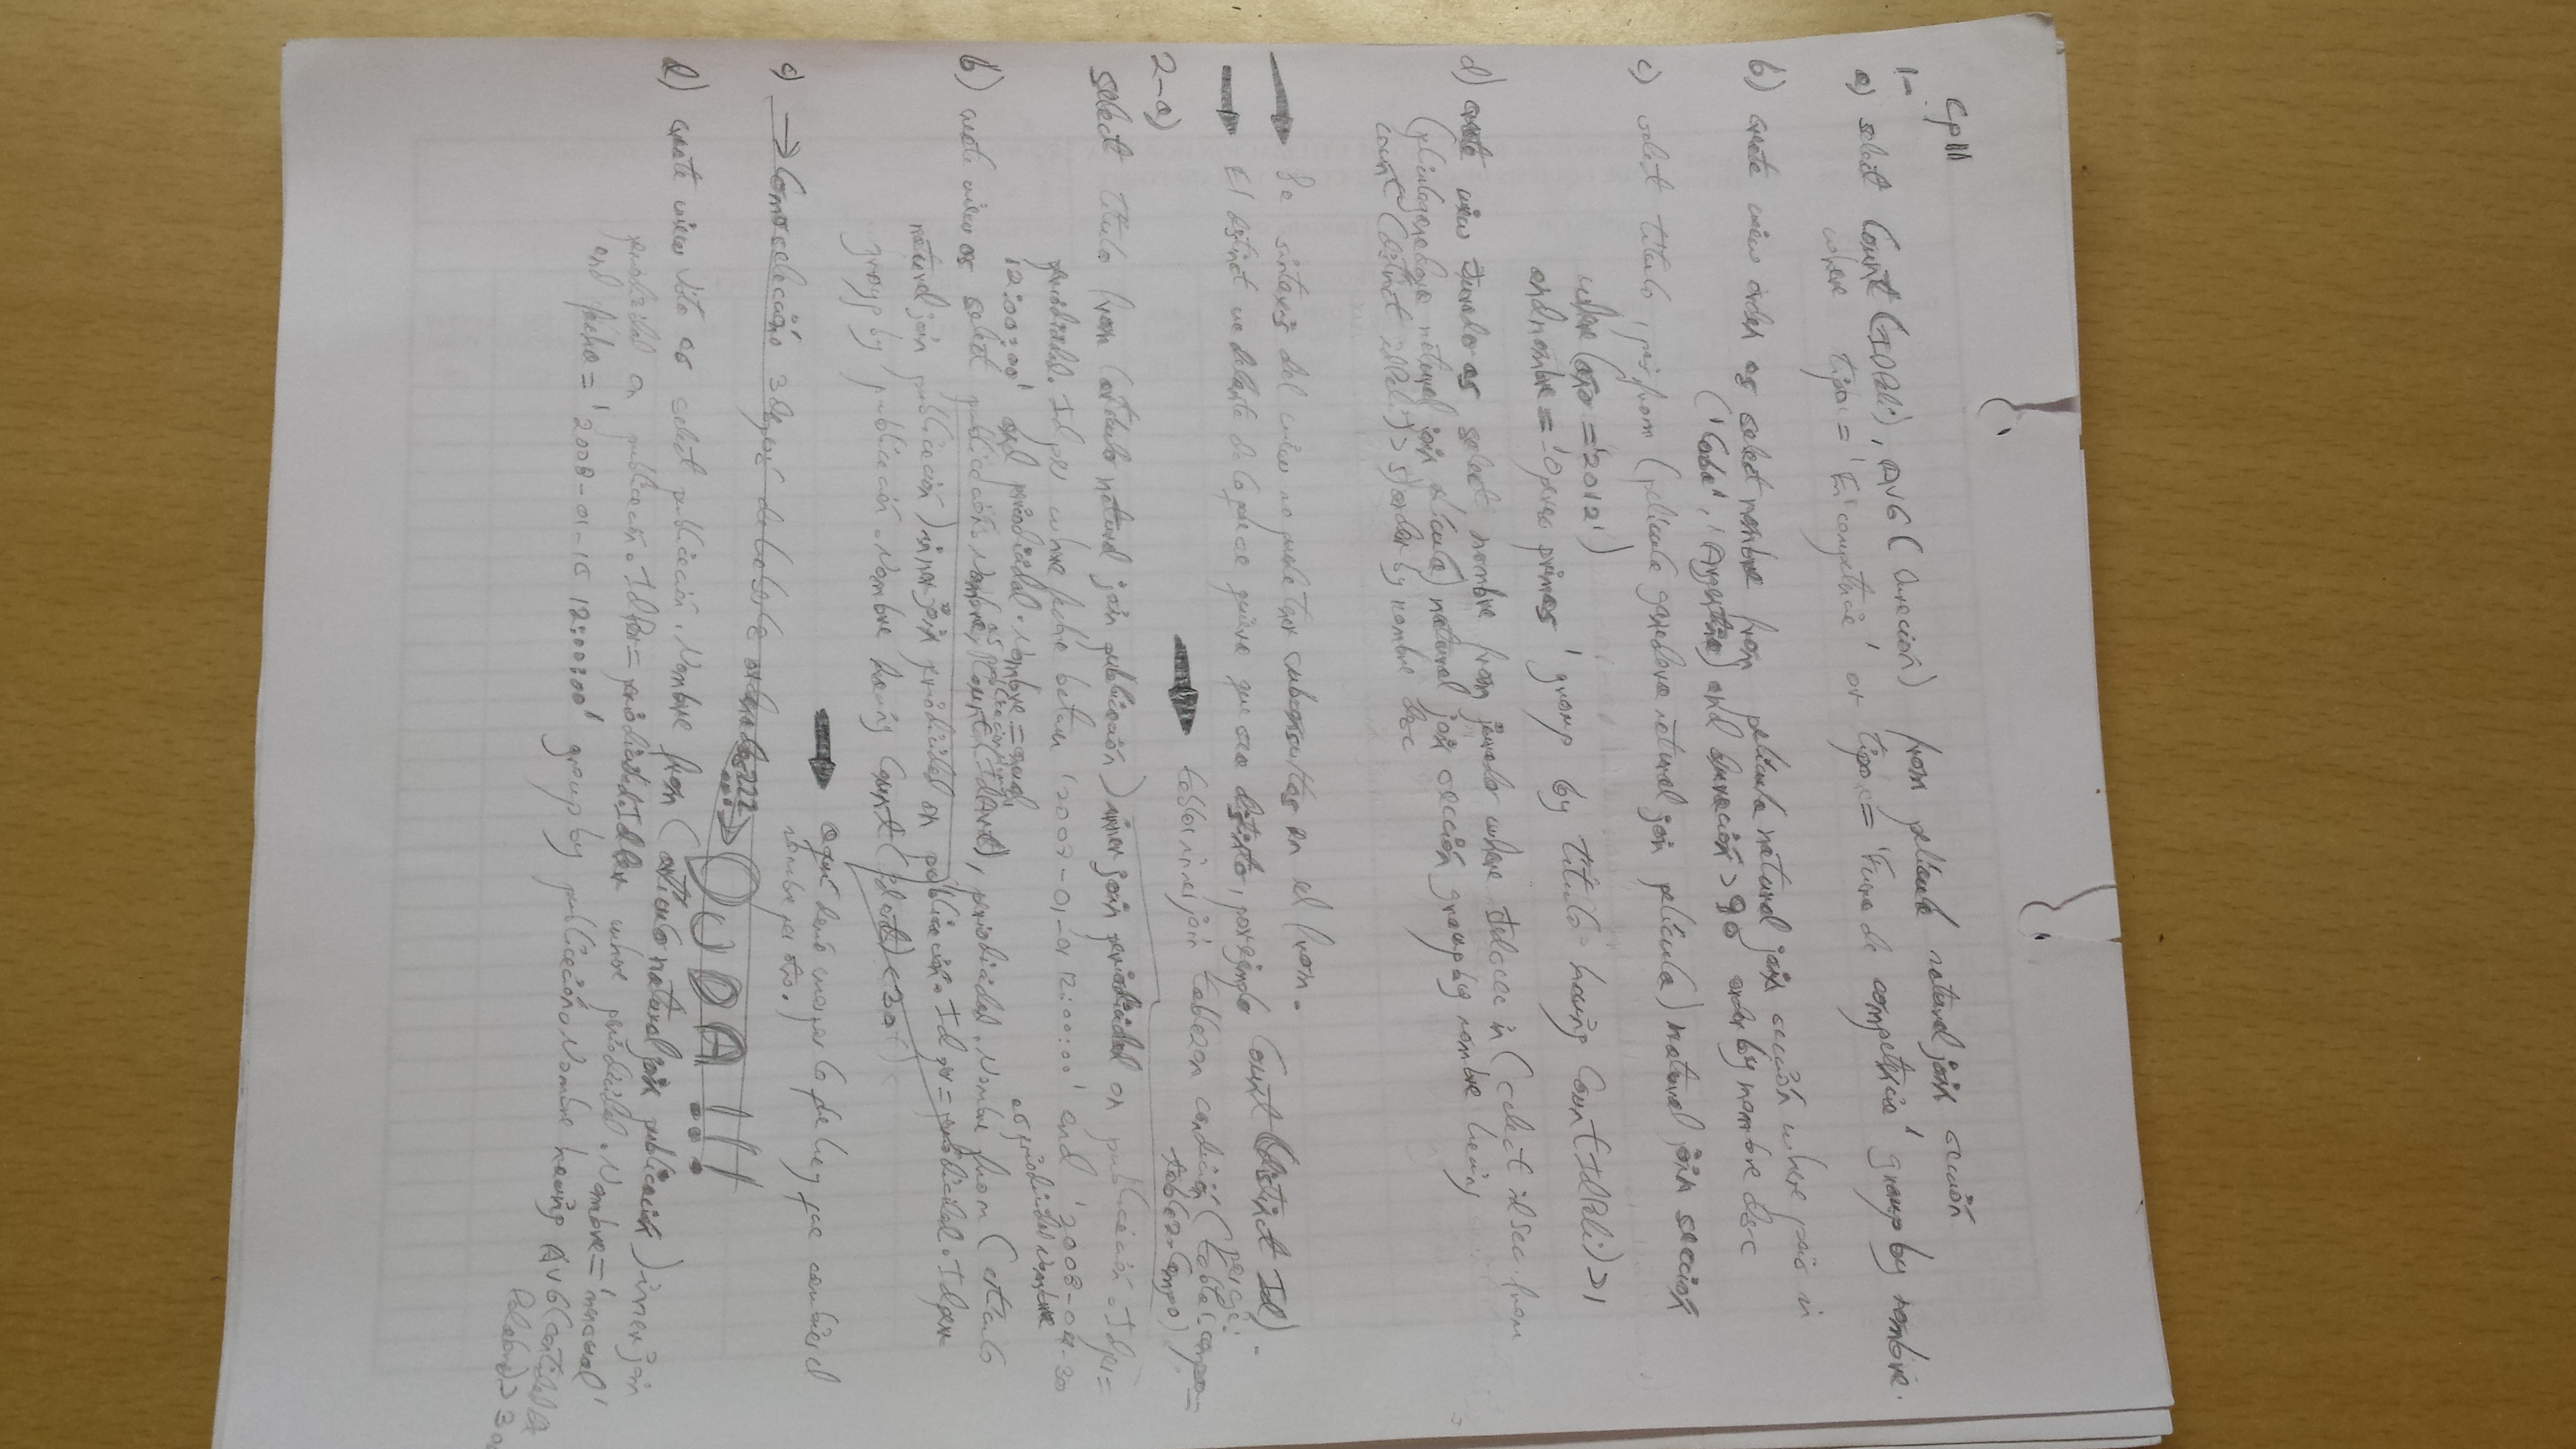 Cp III
1-
a) select Count (IDPeli), AVG (duración) from pelicula natural join sección
where tipo = 'En competencia' or tipo = 'Fuera de competencia' group by nombre.
b) create view orden as select nombre from pelicula natural join sección where país in
('Cuba', 'Argentina') and duración > 90 order by nombre desc
c) select titulo, país from (pelicula ganadora natural join pelicula) natural join sección
where (año = '2012')
and nombre = 'Operas primas' group by titulo having Count (IdPeli) > 1
d) create view jurado as select nombre from jurado where idsecc in (select idsecc from
(peliculaganadora natural join pelicula) natural join sección group by nombre having
count (distinct idPeli) > 5) order by nombre desc
Se sintaxis del view no puede tener subconsultas en el from.
El distinct va delante de lo que se quiere que sea distinto, por ejemplo Count (distinct Id)
tabla1 inner join tabla2 on condición (tabla1.campo =
tabla2.campo)
2-a)
Select titulo from (articulo natural join publicación) inner join periodicidad on publicación.Idper =
periodicidad.Idper where fecha between '2007-01-01 12:00:00' and '2008-04-30
12:00:00' and periodicidad.Nombre = 'anual'
b) create view as select publicación.Nombre, Count (IdArt), periodicidad.Nombre from (articulo
as periodicidad nombre
natural join publicación) inner join periodicidad on publicación.Idper = periodicidad.Idper
group by publicación.Nombre having Count (IdArt) < 30
aquí daría error lo que hay que cambiar el
nombre por otro.
c) → Como selecciono
DUDA !!!
d) create view vista as select publicación.Nombre from (articulo natural join publicación) inner join
periodicidad on publicación.IdPer = periodicidad.Idper where periodicidad.Nombre = 'mensual'
and fecha = '2008-01-10 12:00:00' group by publicación.Nombre having AVG (cantidad de
Palabras) > 300